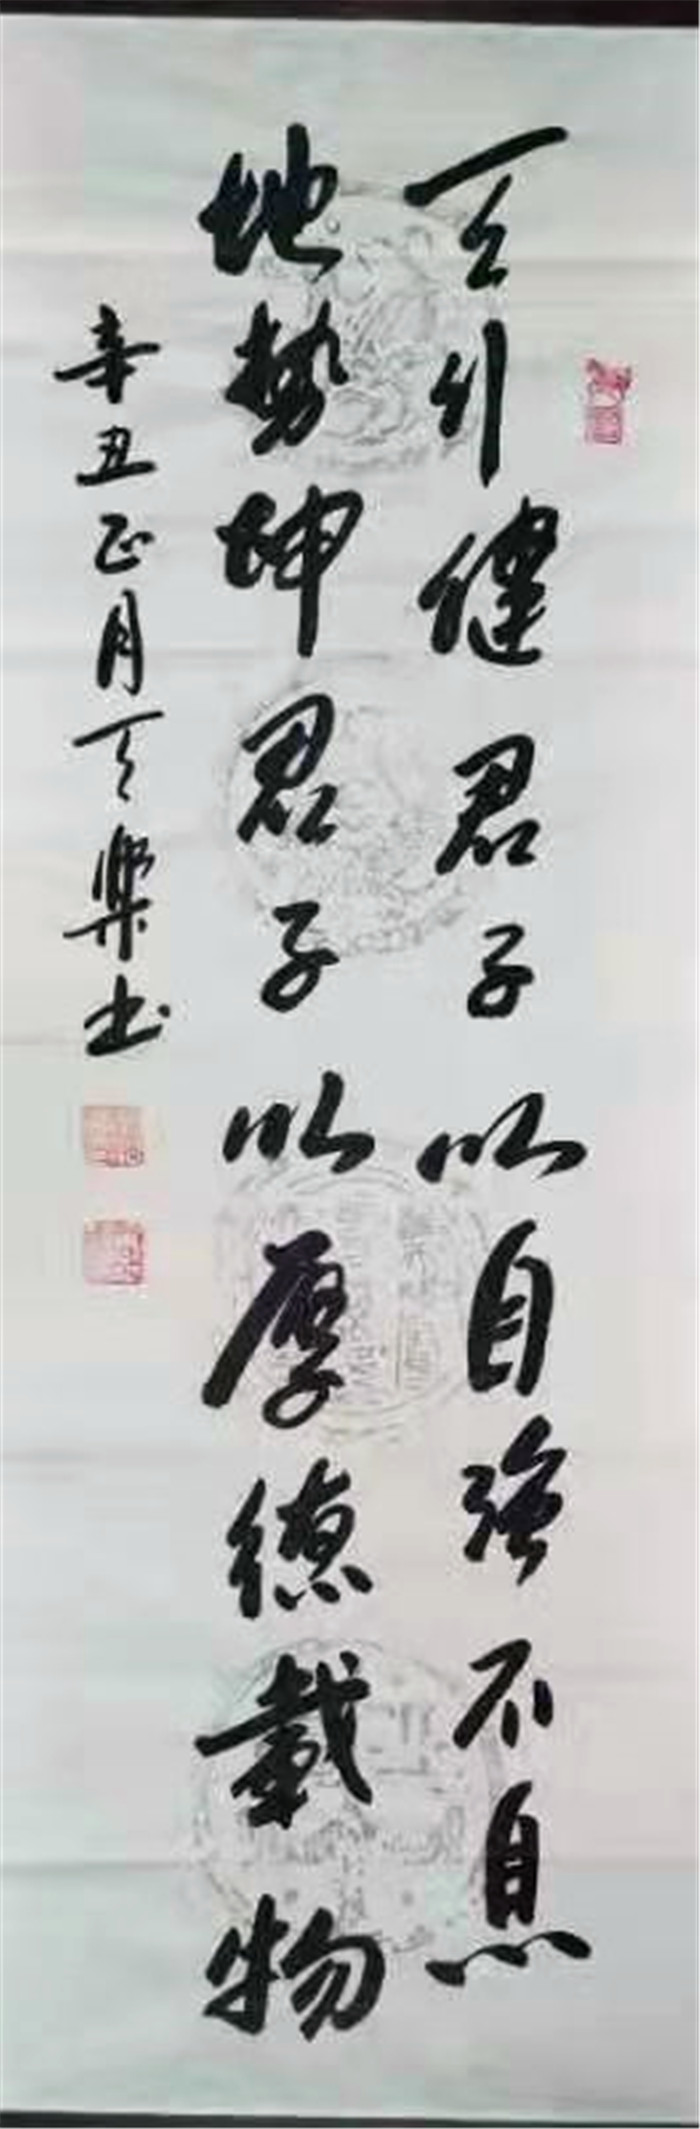 天行健君子以自强不息
地势坤君子以厚德载物
辛丑正月天乐书